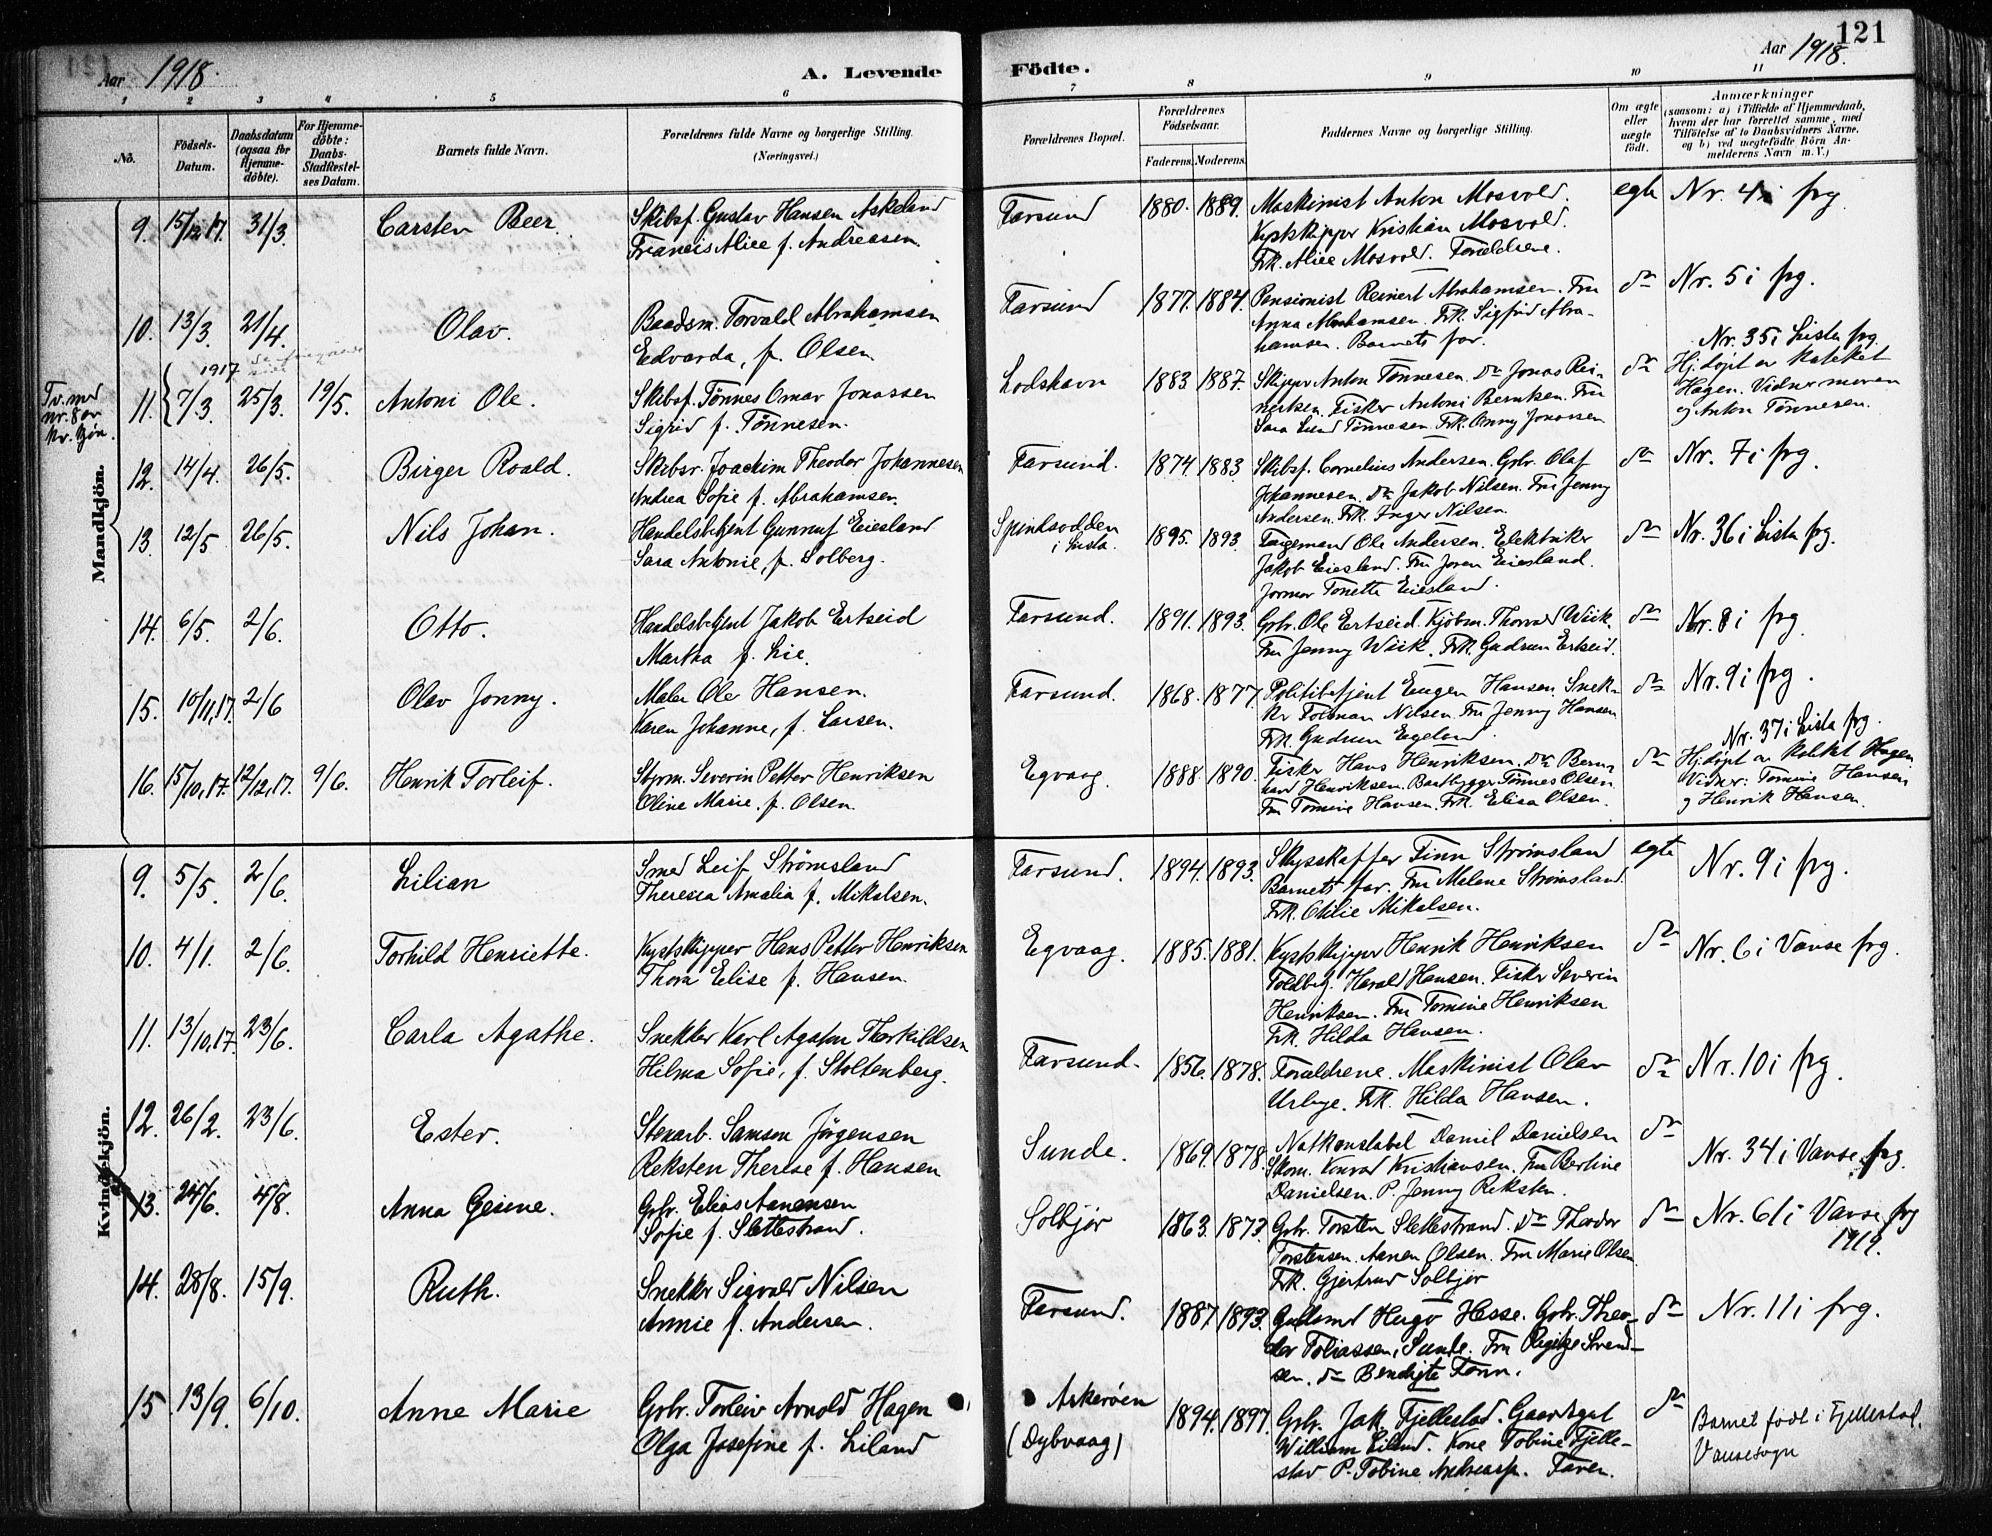 121
Aar 1918.
A. Levende
Födte.
Aar 1918.
1 2 3 4 5 6 7 8 9 10 11
No.
Födsels-Datum.
Daabsdatum (ogsaa for Hjemmedöbte).
For Hjemmedöbte: Daabs-Stadfæstelses Datum.
Barnets fulde Navn.
Forældrenes fulde Navne og borgerlige Stilling.
(Næringsvei.)
Forældrenes Bopæl.
Forældrenes Födselsaar.
Faderens. Moderens.
Faddernes Navne og borgerlige Stilling.
Om ægte eller uægte födt.
Anmærkninger
(saasom: a) i Tilfælde af Hjemmedaab, hvem der har forrettet samme, med Tilföielse af to Daabsvidners Navne, og b) ved uægtefödte Börn Anmelderens Navn m. V.)
Mandkjön.
9. 15/12.17. 31/3. Carsten Beer. Skibsf. Gustav Hansen Askeland
Francis Alice f. Andreasen.
Farsund 1880. 1889. Maskinist Anton Mosvold.
Kystskipper Kristian Mosvold.
Frk. Alice Mosvold. Forældrene.
egte Nr. 4 i frg.
10. 13/3. 21/4. Olav. Baadsm. Torvald Abrahamsen
Edvarda, f. Olsen.
Farsund 1877. 1884. Pensionist Reinert Abrahamsen. Fru
Anna Abrahamsen. Frk. Sigfrid Abra-
hamsen. Barnets far.
do Nr. 5 i frg.
Tv. med
nr. 8 av
kv. kjøn.
1917
11. 7/3. 25/3. 19/5. Antoni Ole. Skibsf. Tønnes Omar Jonassen
Sigrid f. Tønnesen.
Lodshavn 1883 1887. Skipper Anton Tønnesen. do Jonas Rei-
nertsen. Fisker Antoni Berntsen. Fru
Sara Lund Tønnesen. Frk. Anny Jonassen
do Nr. 35 i Lista frg.
Hj.døpt av kateket
Hagen. Vidner moren
og Anton Tønnesen.
12. 14/4. 26/5. Birger Roald. Skibsr. Joachim Theodor Johannesen
Andrea Sofie f. Abrahamsen.
Farsund. 1874. 1883. Skibsf. Cornelius Andersen. Gbr. Olaf
Johannesen. do Jakob Nilsen. Fru Jenny
Andersen. Frk. Inger Nilsen.
do Nr. 7 i frg.
13. 12/5. 26/5. Nils Johan. Handelsbetjent Gunnuf Eiesland
Sara Antonie, f. Solberg.
Spindsodden
i Lista. 1895. 1893. Ole Andersen. Elektriker
Jakob Eiesland. Fru Joren Eiesland.
Jormor Tonette Eiesland.
do Nr. 36 i Lista frg.
14. 6/5. 2/6. Otto. Handelsbetjent Jakob Ertseid
Martha f. Lie.
Farsund. 1891. 1893. Gbr. Ole Ertseid. Kjøbm. Thorvald Wiik.
Fru Jenny Wiik. Frk. Gudrun Ertseid.
do Nr. 8 i frg.
15. 10/11.17. 2/6 Olav Jonny. Maler Ole Hansen.
Karen Johanne, f. Larsen.
Farsund. 1868. 1877. Politibetjent Eugen Hansen. Snek-
ker Folkman Nilsen. Fru Jenny Hansen
Frk. Gudrun Eigeland.
do Nr. 9 i frg.
16. 15/10.17. 12/12.17. 9/6. Henrik Torleif. Styrm. Severin Petter Henriksen
Oline Marie, f. Olsen.
Eqvaag. 1888. 1890. Fisker Hans Henriksen. do Bern-
hard Henriksen. Baatbygger Tønnes Olsen
Fru Tomine Hansen. Frk. Elisa Olsen.
do Nr. 37 i Lista frg.
Hj.døpt av katekt Hagen
Vidner: Tomine Hansen
og Henrik Hansen.
Kvindekjön.
9. 5/5. 2/6. Lilian Smed Leif Strømsland
Theresia Amalia f. Mikalsen.
Farsund. 1894. 1893. Skysskaffer Finn Strømsland
Barnets far. Fru Malene Strømsland.
Frk. Otilie Mikalsen.
egte Nr. 9 i frg.
10. 4/1. 2/6. Torhild Henriette. Kystskipper Hans Petter Henriksen
Thora Elise f. Hansen.
Eqvaag. 1885. 1881. Kystskipper Henrik Henriksen
Toldbetj. Harald Hansen. Fisker Severin
Henriksen. Fru Tomine Henriksen
Frk. Hilda Hansen.
do Nr. 6 i Vanse frg.
11. 13/10.17. 23/6. Carla Agathe. Snekker Karl Agaton Thorkildsen
Hilma Sofie, f. Stoltenberg.
Farsund. 1856. 1878. Forældrene. Maskinist Olav
Urbye. Frk. Hilda Hansen.
do Nr. 10 i frg.
12. 26/2. 23/6. Ester. Stenarb. Samson Jørgensen
Reksten Therese f. Hansen
Sunde. 1869. 1878. Natkonstabel Daniel Danielsen
Skom. Konrad Kristiansen. Fru Bertine
Danielsen. P. Jenny Reksten.
do Nr. 34 i Vanse frg.
13. 24/6. 4/8. Anna Gesine. Gbr. Elias Aanensen
Sofie f. Slettestrand.
Solbjør 1863. 1873. Gbr. Torsten Slettestrand. do Theodor
Torstensen. Aanen Olsen. Fru Marie Olsen
Frk. Gjertrud Solbjør
do Nr. 61 i Vanse frg
1919.
14. 28/8. 15/9. Ruth. Snekker Sigvald Nilsen
Annie f. Andersen.
Farsund. 1887 1893. Guldsmed Hugo Hesse. Gbr. Theo-
dor Tobiassen, Sunde. Fru Svend-
sen. do Bendigte Fonn.
do Nr. 11 i frg.
15. 13/9. 6/10. Anne Marie Gbr. Torleiv Arnold Hagen
Olga Josefine f. Liland
Askerøen
(Dybvaag) 1894. 1897. Gbr. Jak. Fjellestad. Gaardsgut
William Liland. Kone Tobine Fjelle-
stad P. Tobine Faren.
do Barnet født i Fjellestad,
Vansesogn